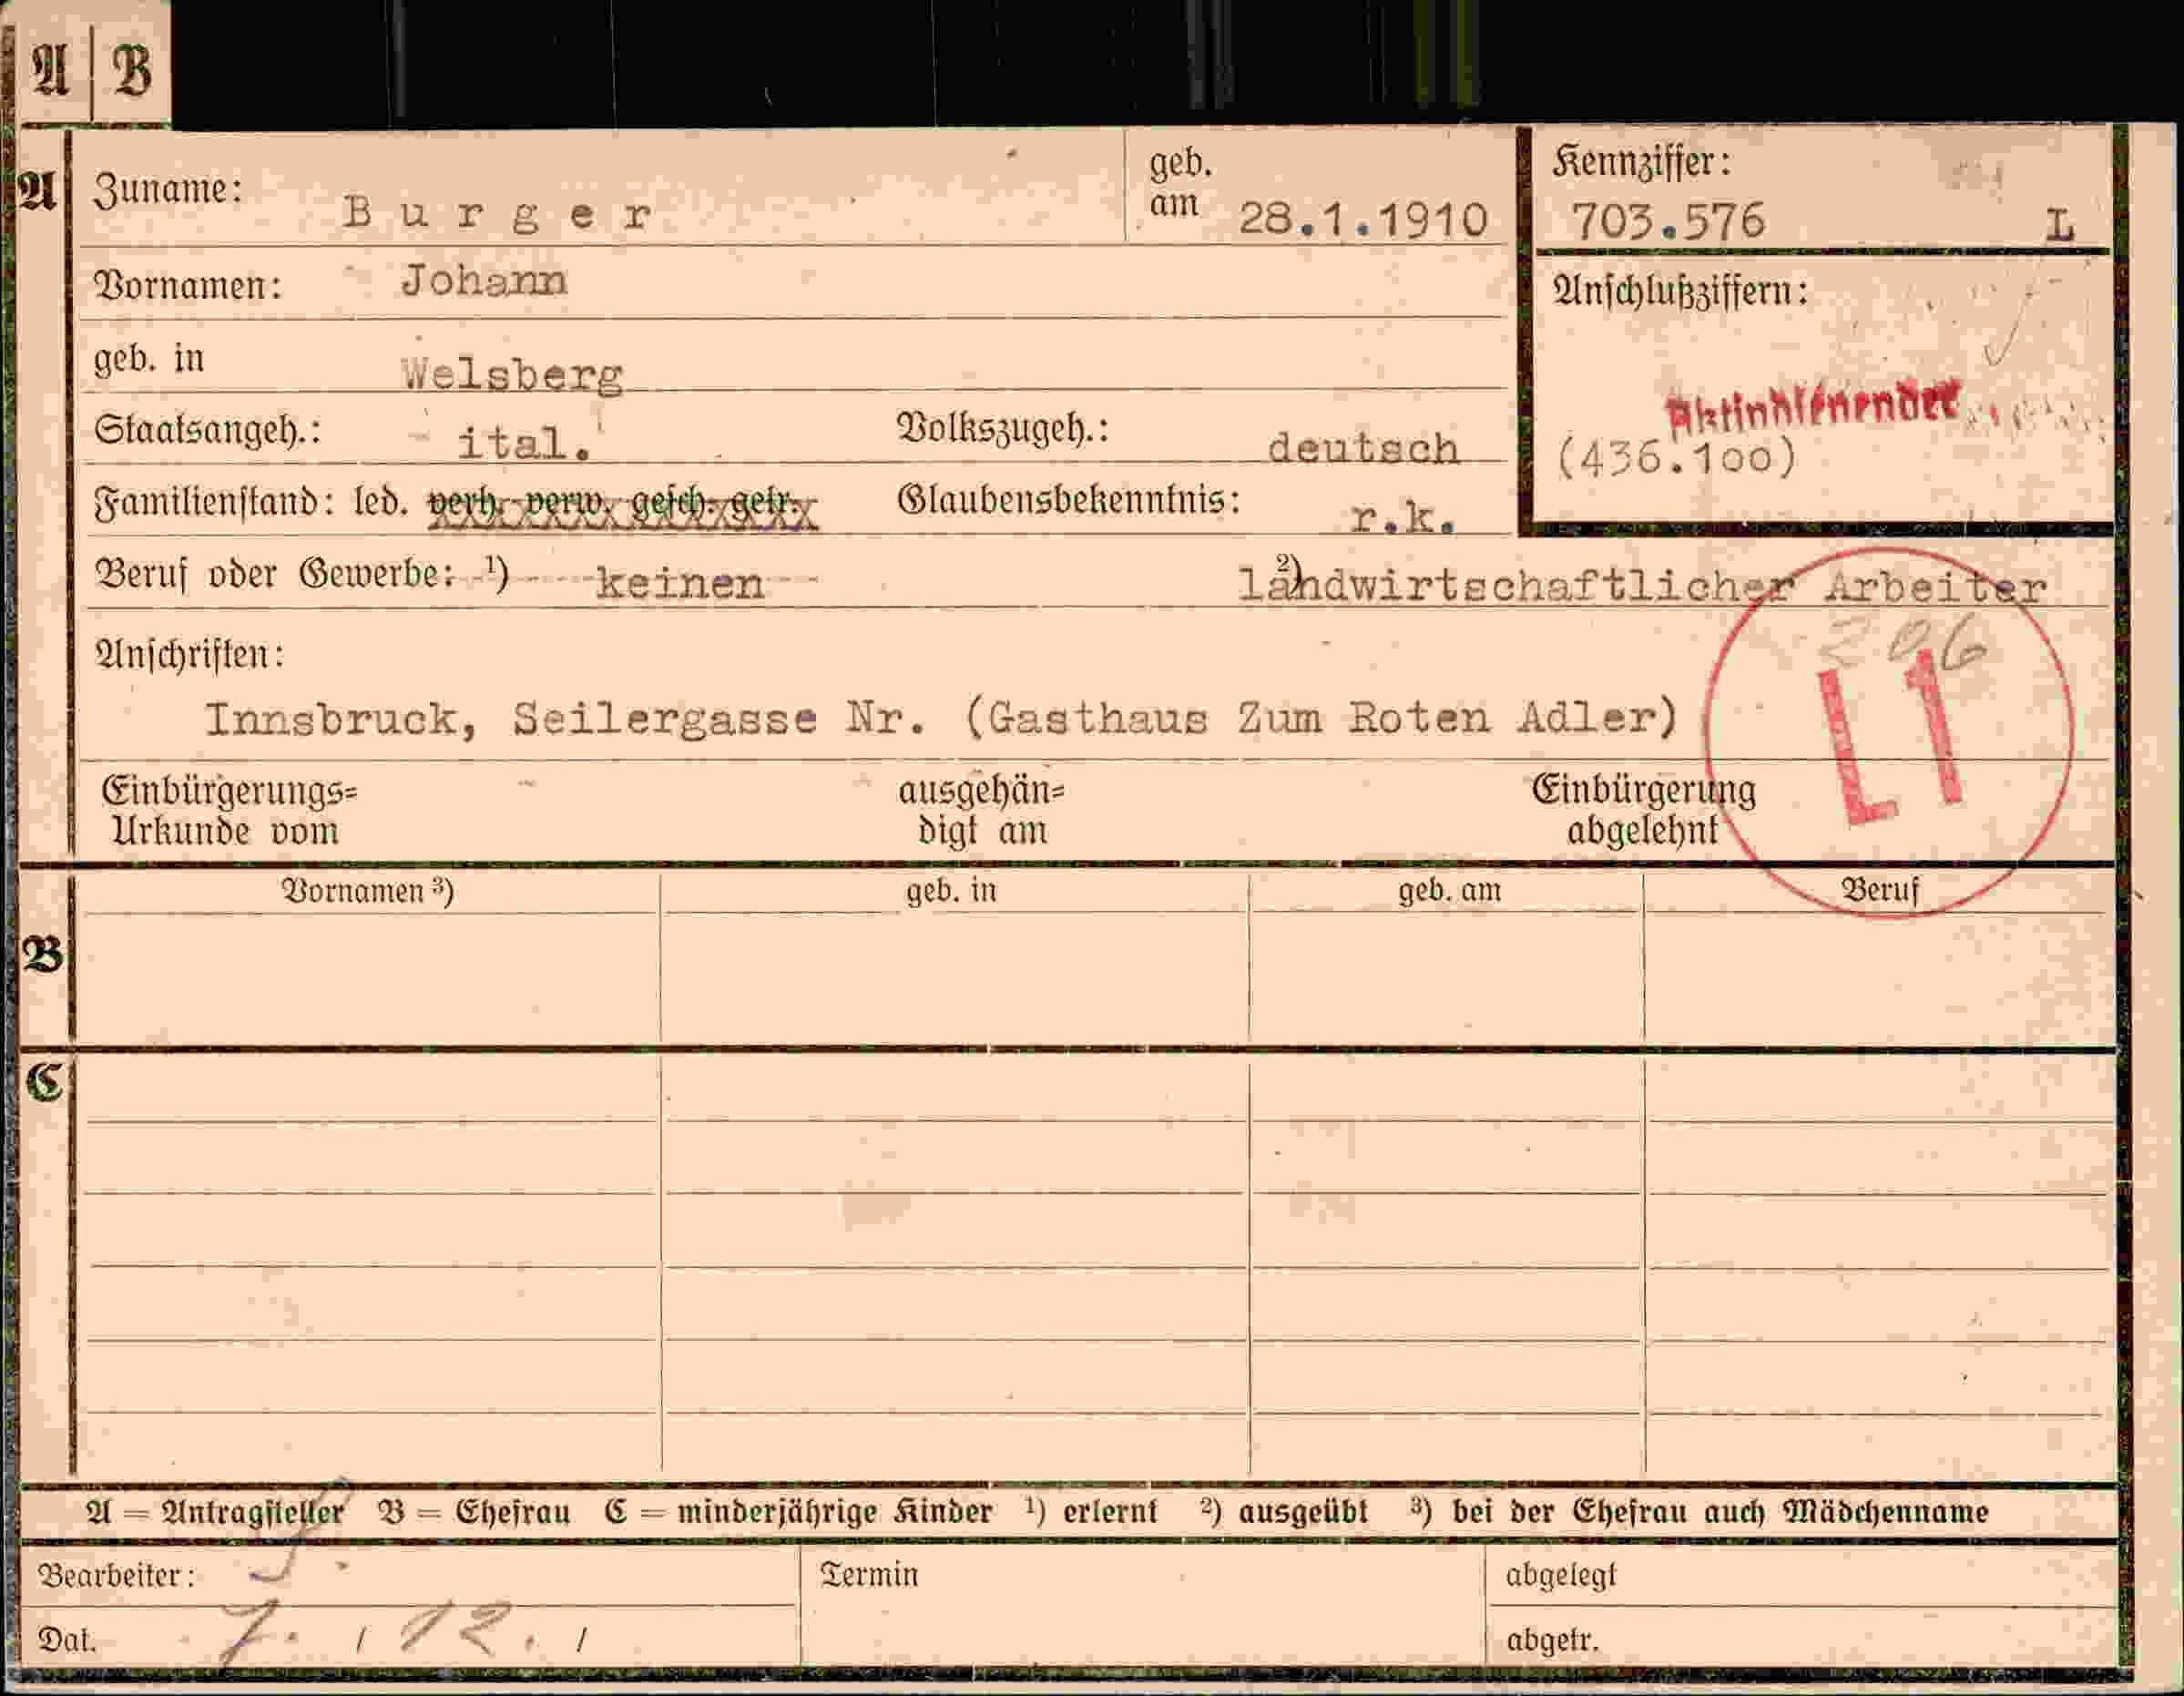 A | B
A Zuname: Burger geb. am 28.1.1910 Kennziffer: 703.576 L
Vornamen: Johann Anschlußziffern:
geb. in Welsberg
Staatsangeh.: ital. Volkszugeh.: deutsch (436.100)
Familienstand: led. verh. verw. gesch. getr. Glaubensbekenntnis: r.k.
Beruf oder Gewerbe: 1) keinen 2) landwirtschaftlicher Arbeiter
Anschriften: 206
Innsbruck, Seilergasse Nr. (Gasthaus Zum Roten Adler) L1
Einbürgerungs= ausgehän= Einbürgerung
Urkunde vom digt am abgelehnt
Vornamen 3) geb. in geb. am Beruf
B
C
A = Antragsteller B = Ehefrau C = minderjährige Kinder 1) erlernt 2) ausgeübt 3) bei der Ehefrau auch Mädchenname
Bearbeiter: Termin abgelegt
Dat. 7. / 12. / abgetr.